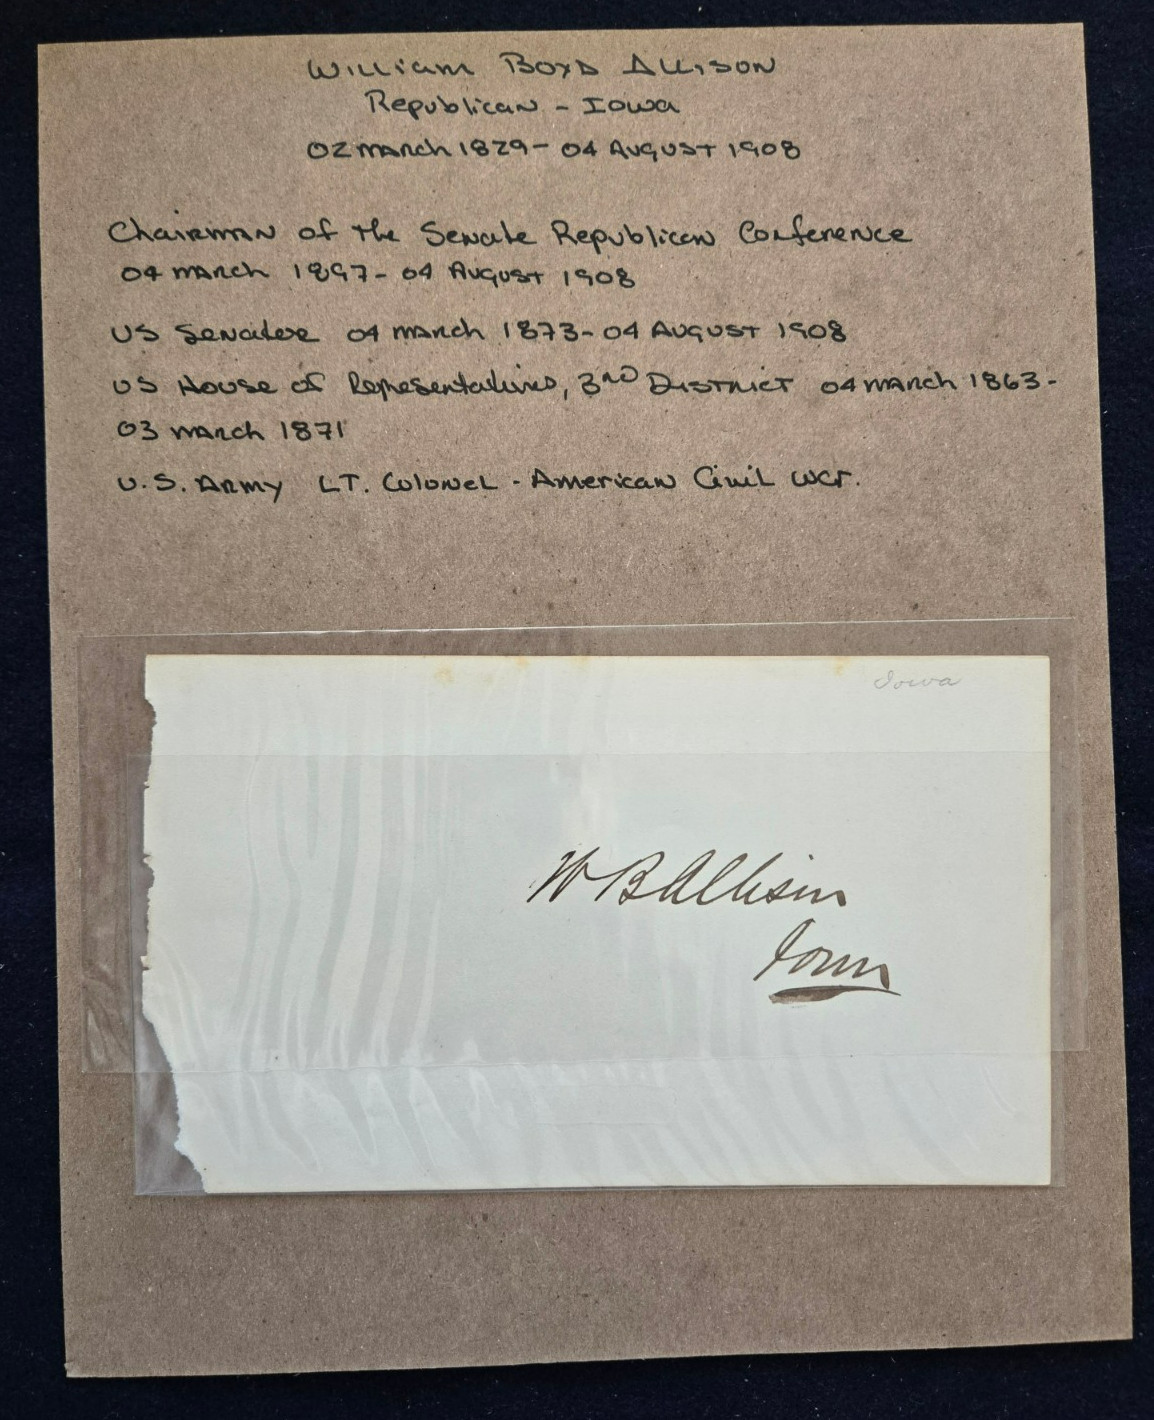 William Boyd Allison
Republican - Iowa
02 March 1829 - 04 August 1908
Chairman of the Senate Republican Conference
04 March 1897 - 04 August 1908
US Senator 04 March 1873 - 04 August 1908
US House of Representatives, 3rd District 04 March 1863 -
03 March 1871
U.S. Army LT. Colonel - American Civil War.
Iowa
W B Allison
Iowa